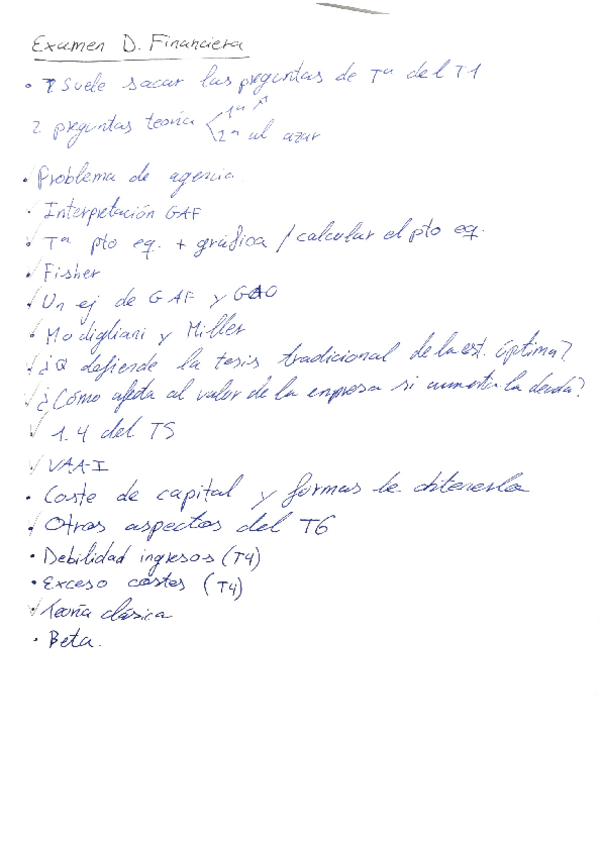 Examen D. Financiera
• Suele sacar las preguntas de Tª del T1
2 preguntas teoría < 1ª
2ª al azar
• Problema de agencia.
• Interpretación GAF
• Tª pto eq. + gráfica / calcular el pto eq.
• Fisher
• Un ej de GAF y GAO
• Modigliani y Miller
• ¿Q defiende la tesis tradicional de la est. óptima?
• ¿Cómo afecta al valor de la empresa si aumenta la deuda?
1.4 del T5
VAA-I
• Coste de capital y formas de obtenerlo
• Otros aspectos del T6
• Debilidad ingresos (T4)
• Exceso costes (T4)
Teoría clásica
• Beta.